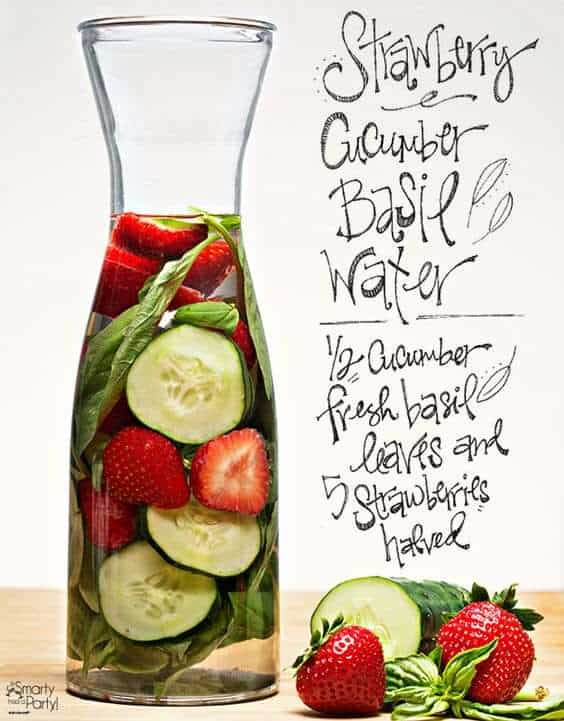 Strawberry
Cucumber
Basil
Water
1/2 Cucumber
fresh basil
leaves and
5 Strawberries
halved
Smarty
had a
Party!